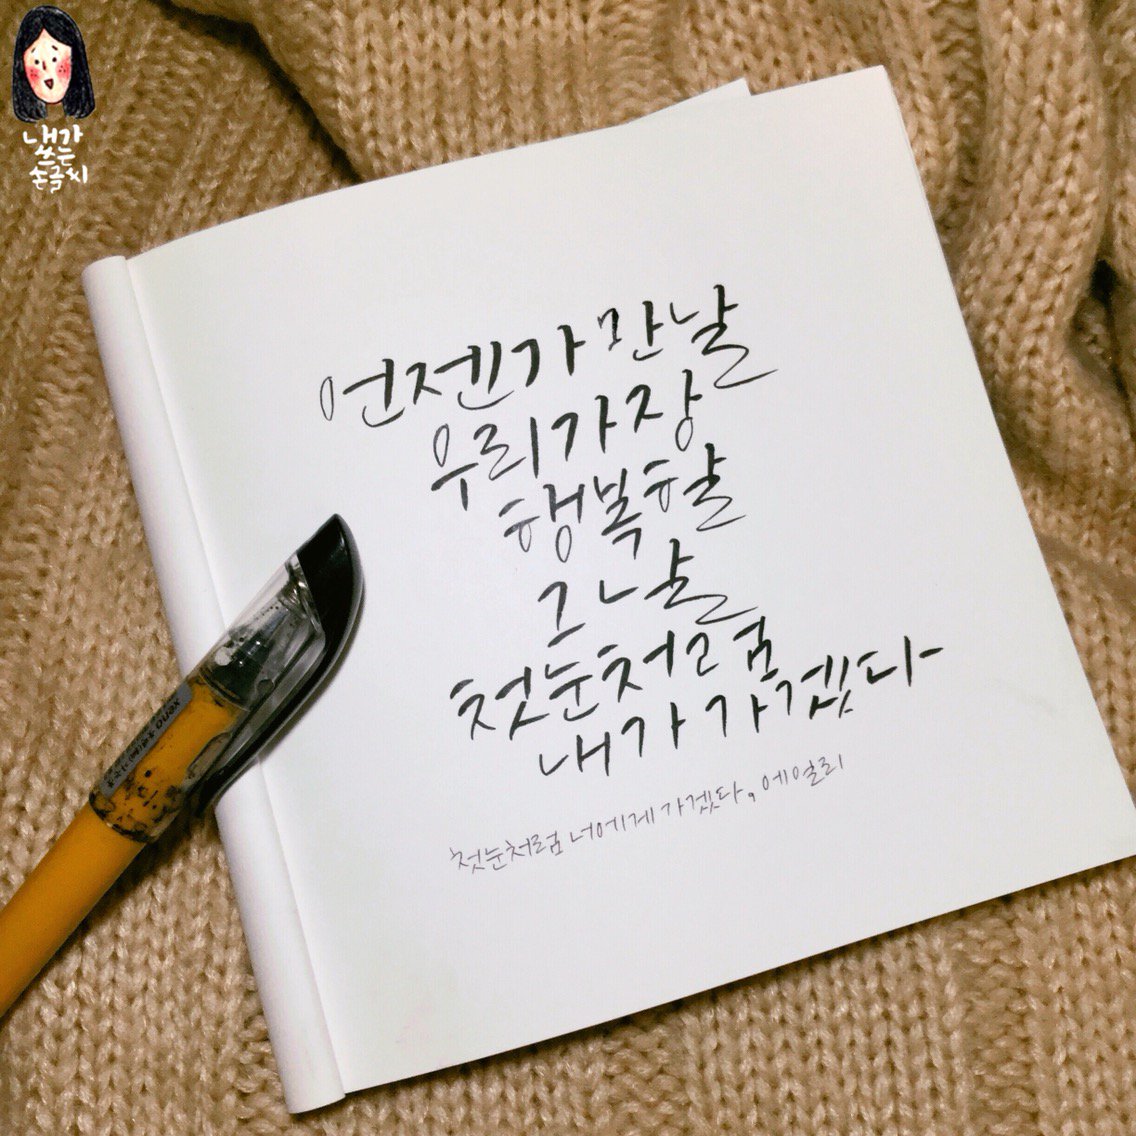 내가
쓰는
손글씨
언젠가 만날
우리 가장
행복할
그날
첫눈처럼
내가 가겠다
첫눈처럼 너에게 가겠다, 에일리
xeno